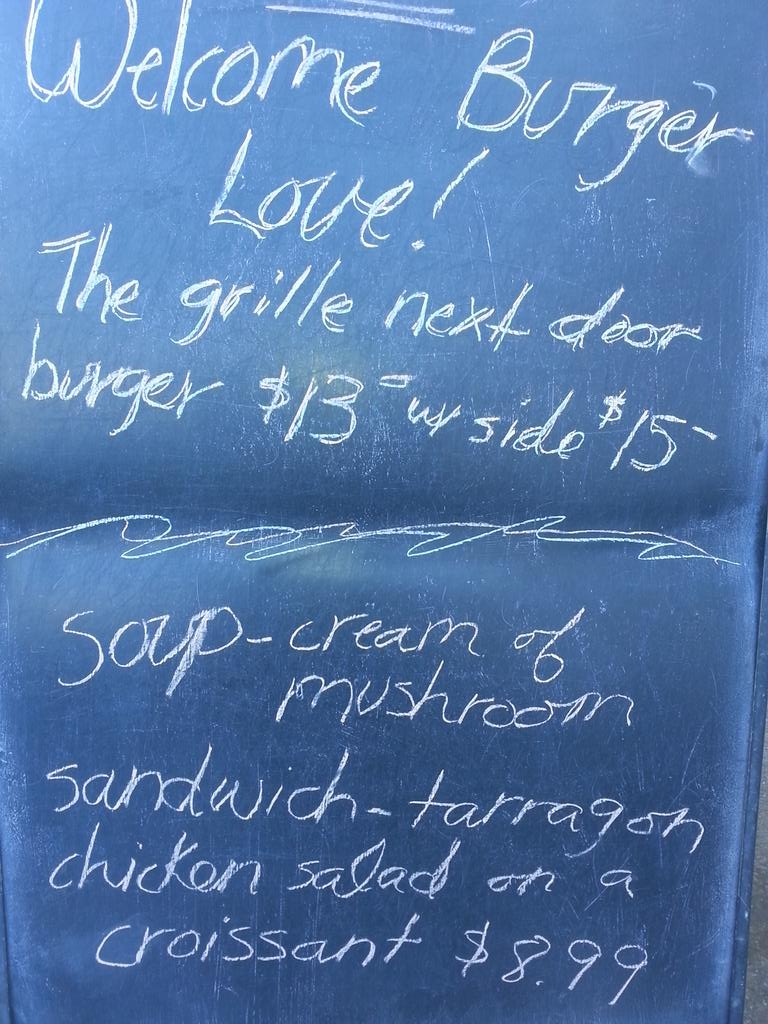 Welcome Burger
Love!
The grille next door
burger $13- w/ side $15-
soup-cream of
mushroom
sandwich-tarragon
chicken salad on a
croissant $8.99